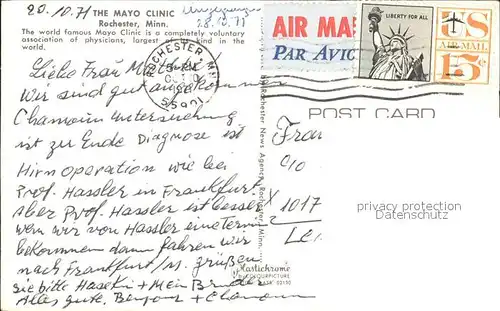 20.10.71 THE MAYO CLINIC
Rochester, Minn.
28.10.71
The world famous Mayo Clinic is a completely voluntary
association of physicians, largest of its kind in the
world.
AIR MAIL
PAR AVION
LIBERTY FOR ALL
US
AIR MAIL
15¢
ROCHESTER MN
55901
POST CARD
Liebe Frau
Wir sind gut angekommen
Chamoun Untersuchung
ist zu Ende Diagnose ist
Hirnoperation wie bei
Prof. Hassler in Frankfurt
Aber Prof. Hassler ist besser
wenn wir von Hassler eine Termin
bekommen dann fahren wir
nach Frankfurt/M. grüßen
sie bitte + Mein Bruder
Alles gute. + Chamoun
Rochester News Agency, Rochester, Minn.
Plastichrome
COLOURPICTURE
Frau
c/o
1017
privacy protection
Datenschutz